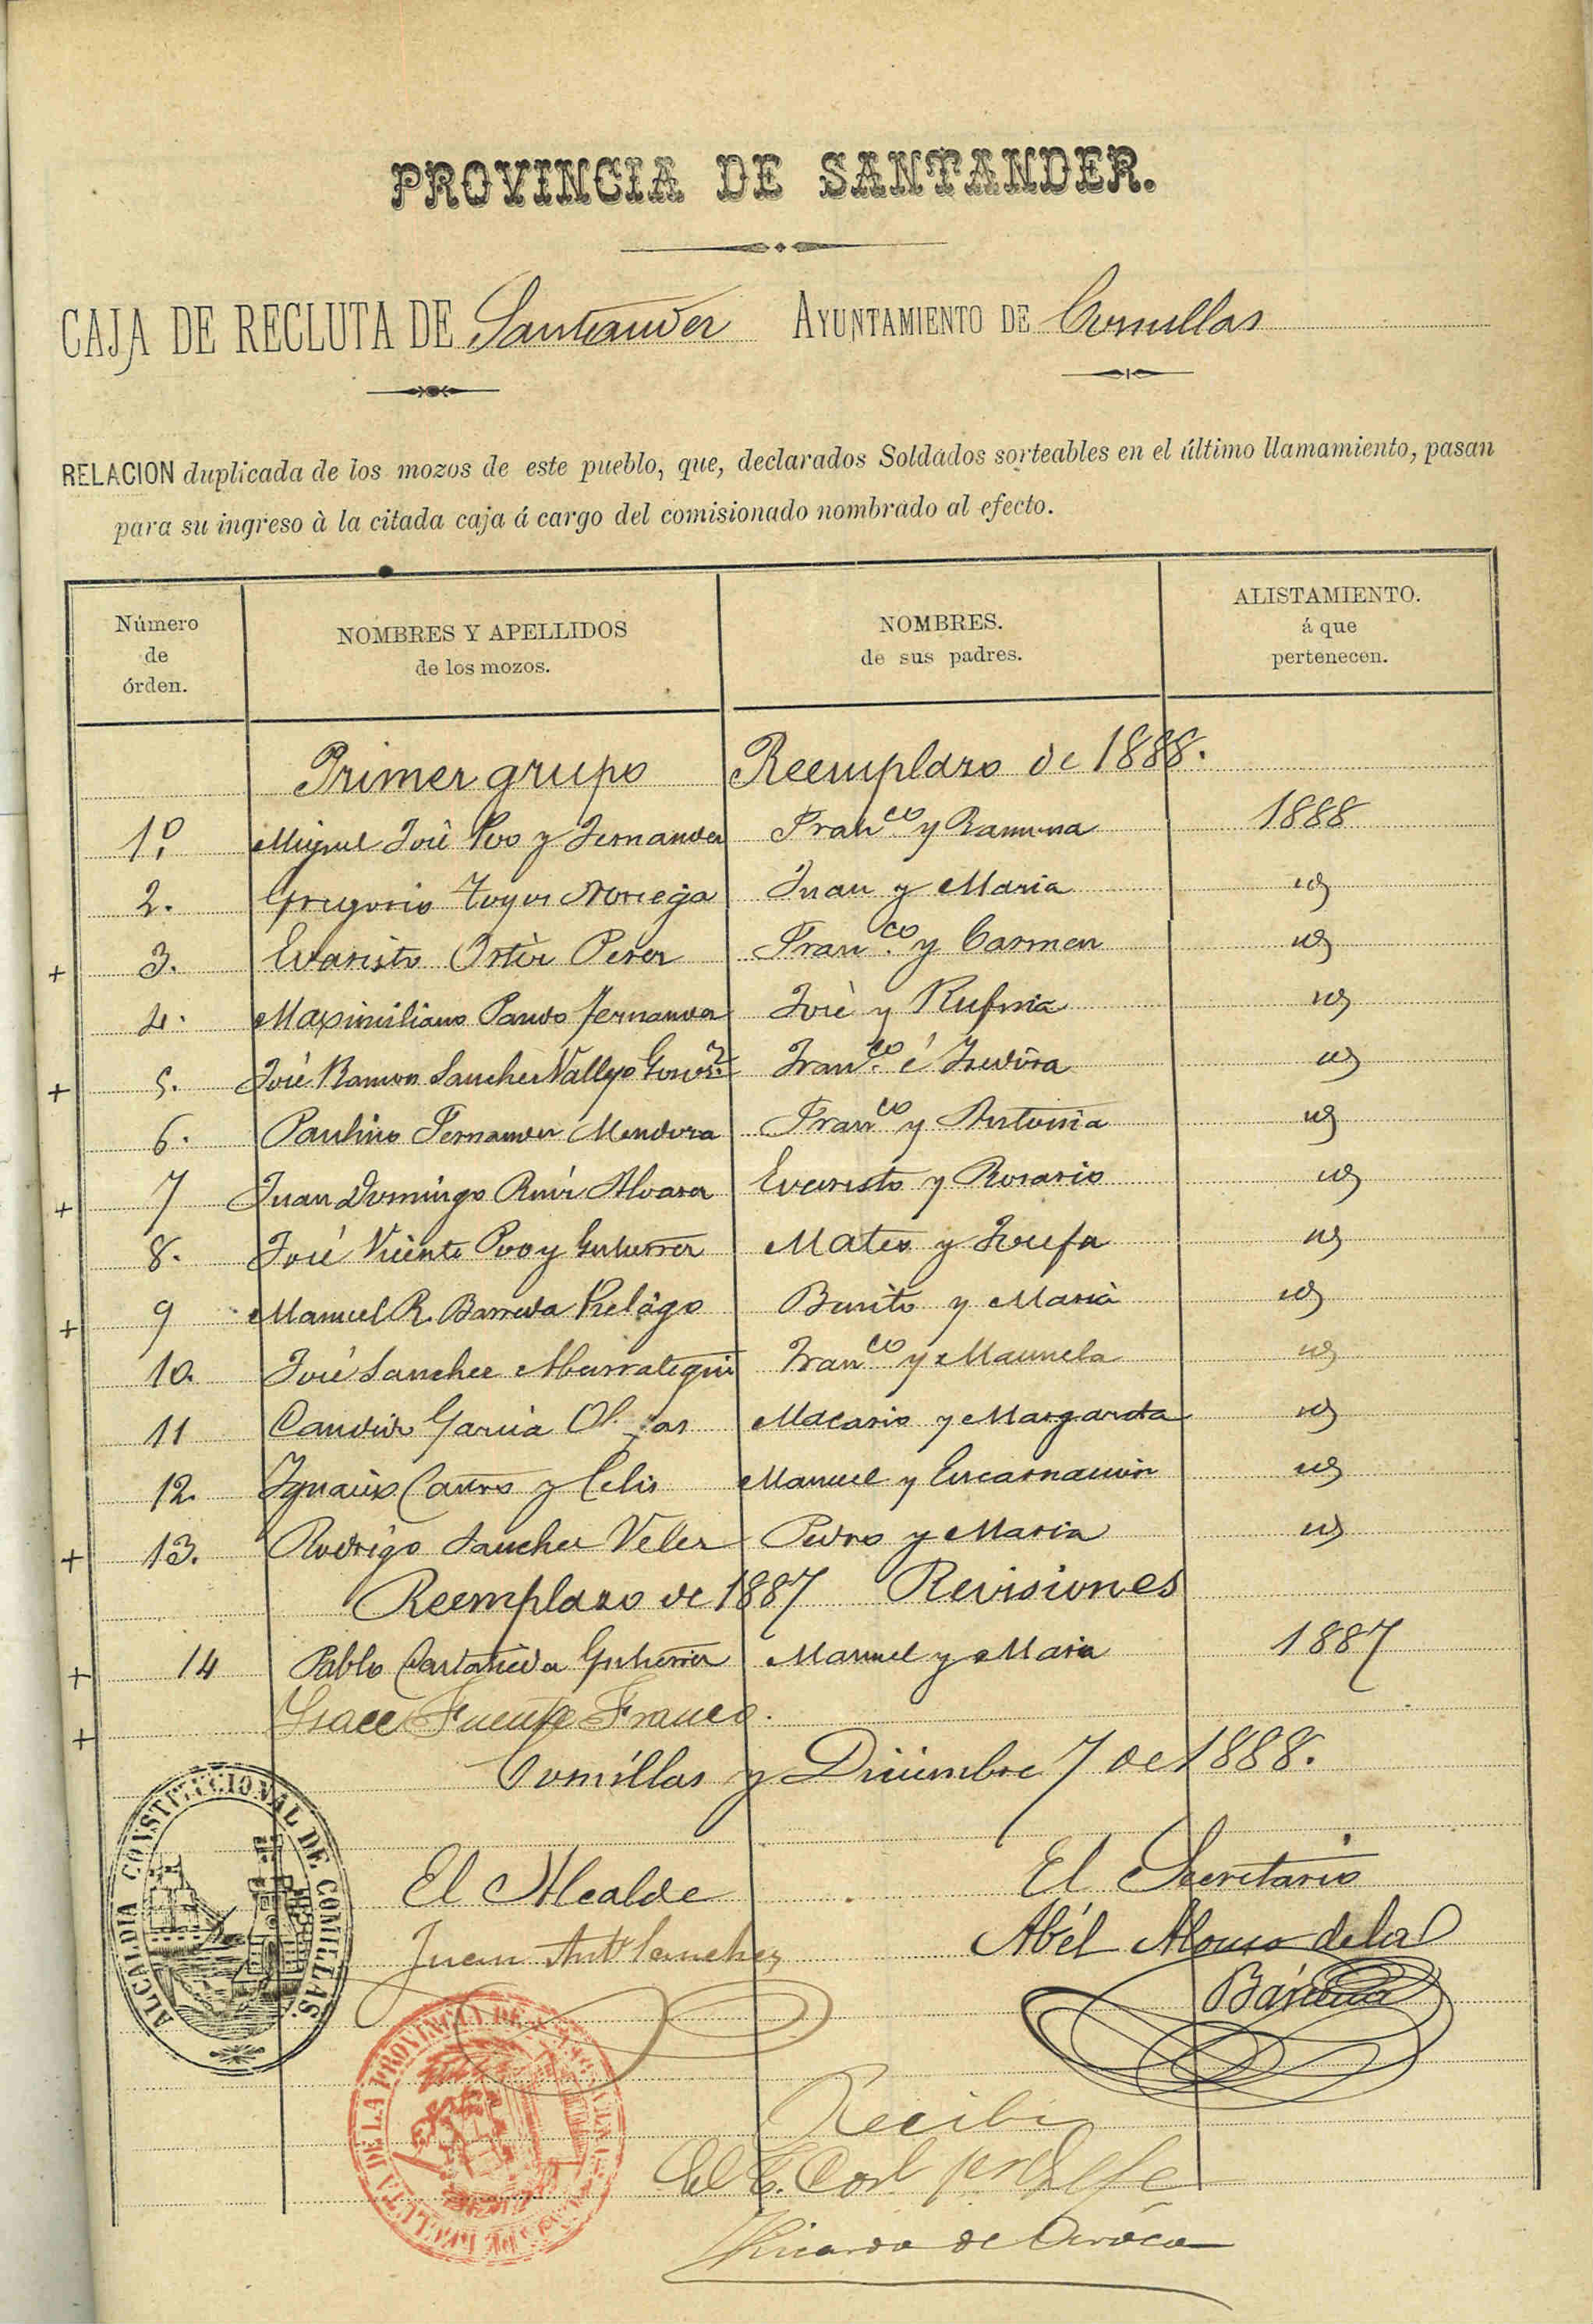 PROVINCIA DE SANTANDER.
CAJA DE RECLUTA DE Santander AYUNTAMIENTO DE Comillas
RELACION duplicada de los mozos de este pueblo, que, declarados Soldados sorteables en el último llamamiento, pasan
para su ingreso à la citada caja á cargo del comisionado nombrado al efecto.
Número de órden. NOMBRES Y APELLIDOS de los mozos. NOMBRES. de sus padres. ALISTAMIENTO. á que pertenecen.
Primer grupo Reemplazo de 1888.
1.º Miguel José Poo y Fernandez Fran.co y Ramona 1888
2. Gregorio Noriega Juan y Maria id
+ 3. Evaristo Ortiz Perez Fran.co y Carmen id
4. Maximiliano Pando Fernandez José y Rufina id
+ 5. José Ramon Sanchez Vallejo Gonz.z Fran.co é Isidora id
6. Paulino Fernandez Mendoza Fran.co y Antonia id
+ 7 Juan Domingo Ruiz Alvarez Evaristo y Rosario id
8. José Vicente Poo y Gutierrez Mateo y Josefa id
+ 9 Manuel R. Barreda Pielago Benito y Maria id
10. José Sanchez Fran.co y Manuela id
11 Candido Garcia Macario y Margarita id
12. Ignacio Castro y Celis Manuel y Encarnacion id
+ 13. Rodrigo Sanchez Velez Pedro y Maria id
Reemplazo de 1887 Revisiones
+ 14 Pablo Castañeda Gutierrez Manuel y Maria 1887
+ Isaac Fuente Franco.
Comillas y Diciembre 7 de 1888.
ALCALDIA CONSTITUCIONAL DE COMILLAS.
El Alcalde El Secretario
Juan Ant.º Sanchez Abél Alonso de la
Bárcena
DE LA PROVINCIA DE
Recibi
El T. Corl 1er Jefe
Ricardo de